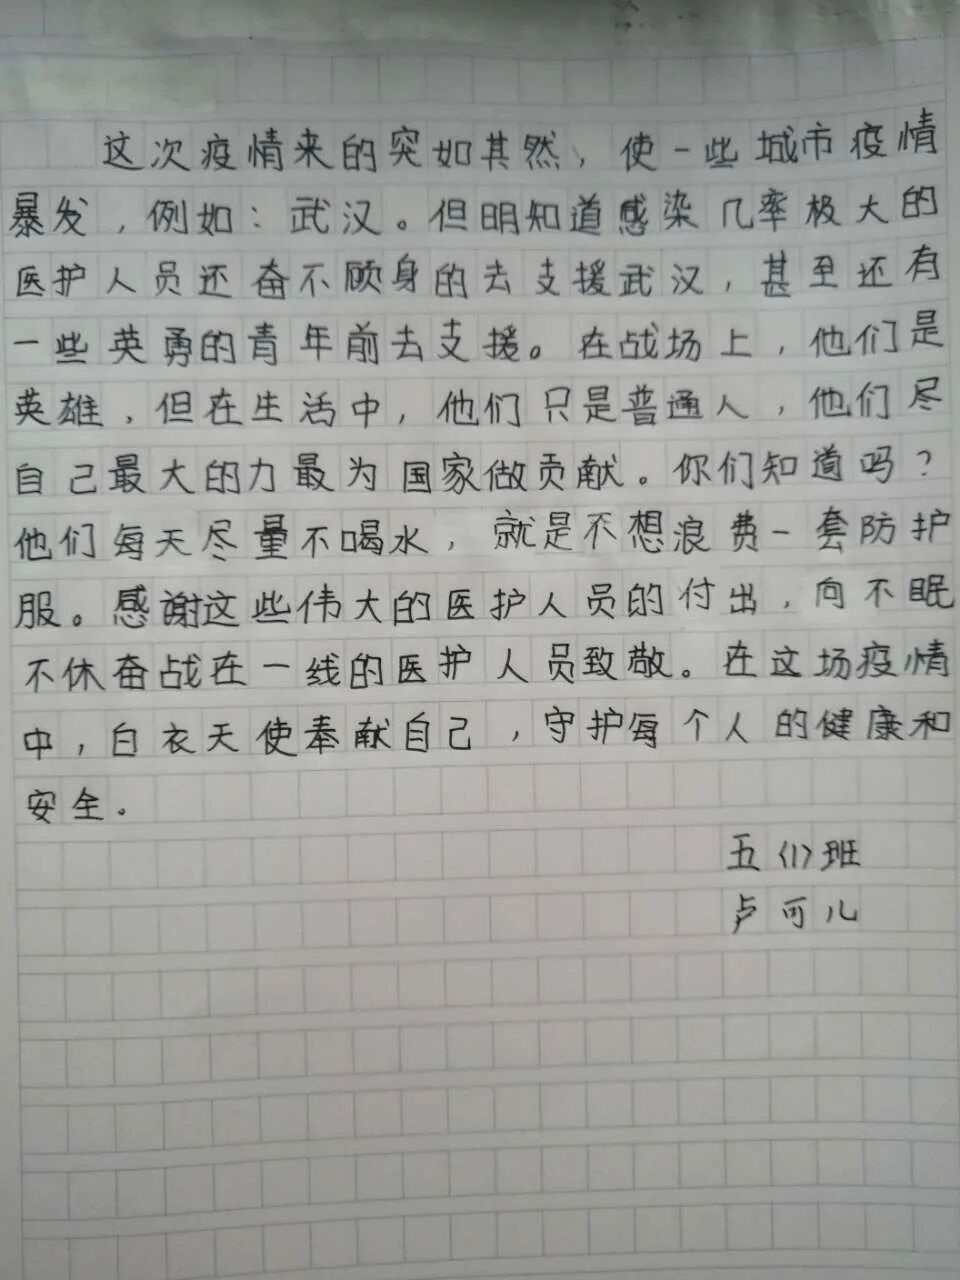 这次疫情来的突如其然，使一些城市疫情
暴发，例如：武汉。但明知道感染几率极大的
医护人员还奋不顾身的去支援武汉，甚至还有
一些英勇的青年前去支援。在战场上，他们是
英雄，但在生活中，他们只是普通人，他们尽
自己最大的力最为国家做贡献。你们知道吗？
他们每天尽量不喝水，就是不想浪费一套防护
服。感谢这些伟大的医护人员的付出，向不眠
不休奋战在一线的医护人员致敬。在这场疫情
中，白衣天使奉献自己，守护每个人的健康和
安全。
五〈1〉班
卢可儿